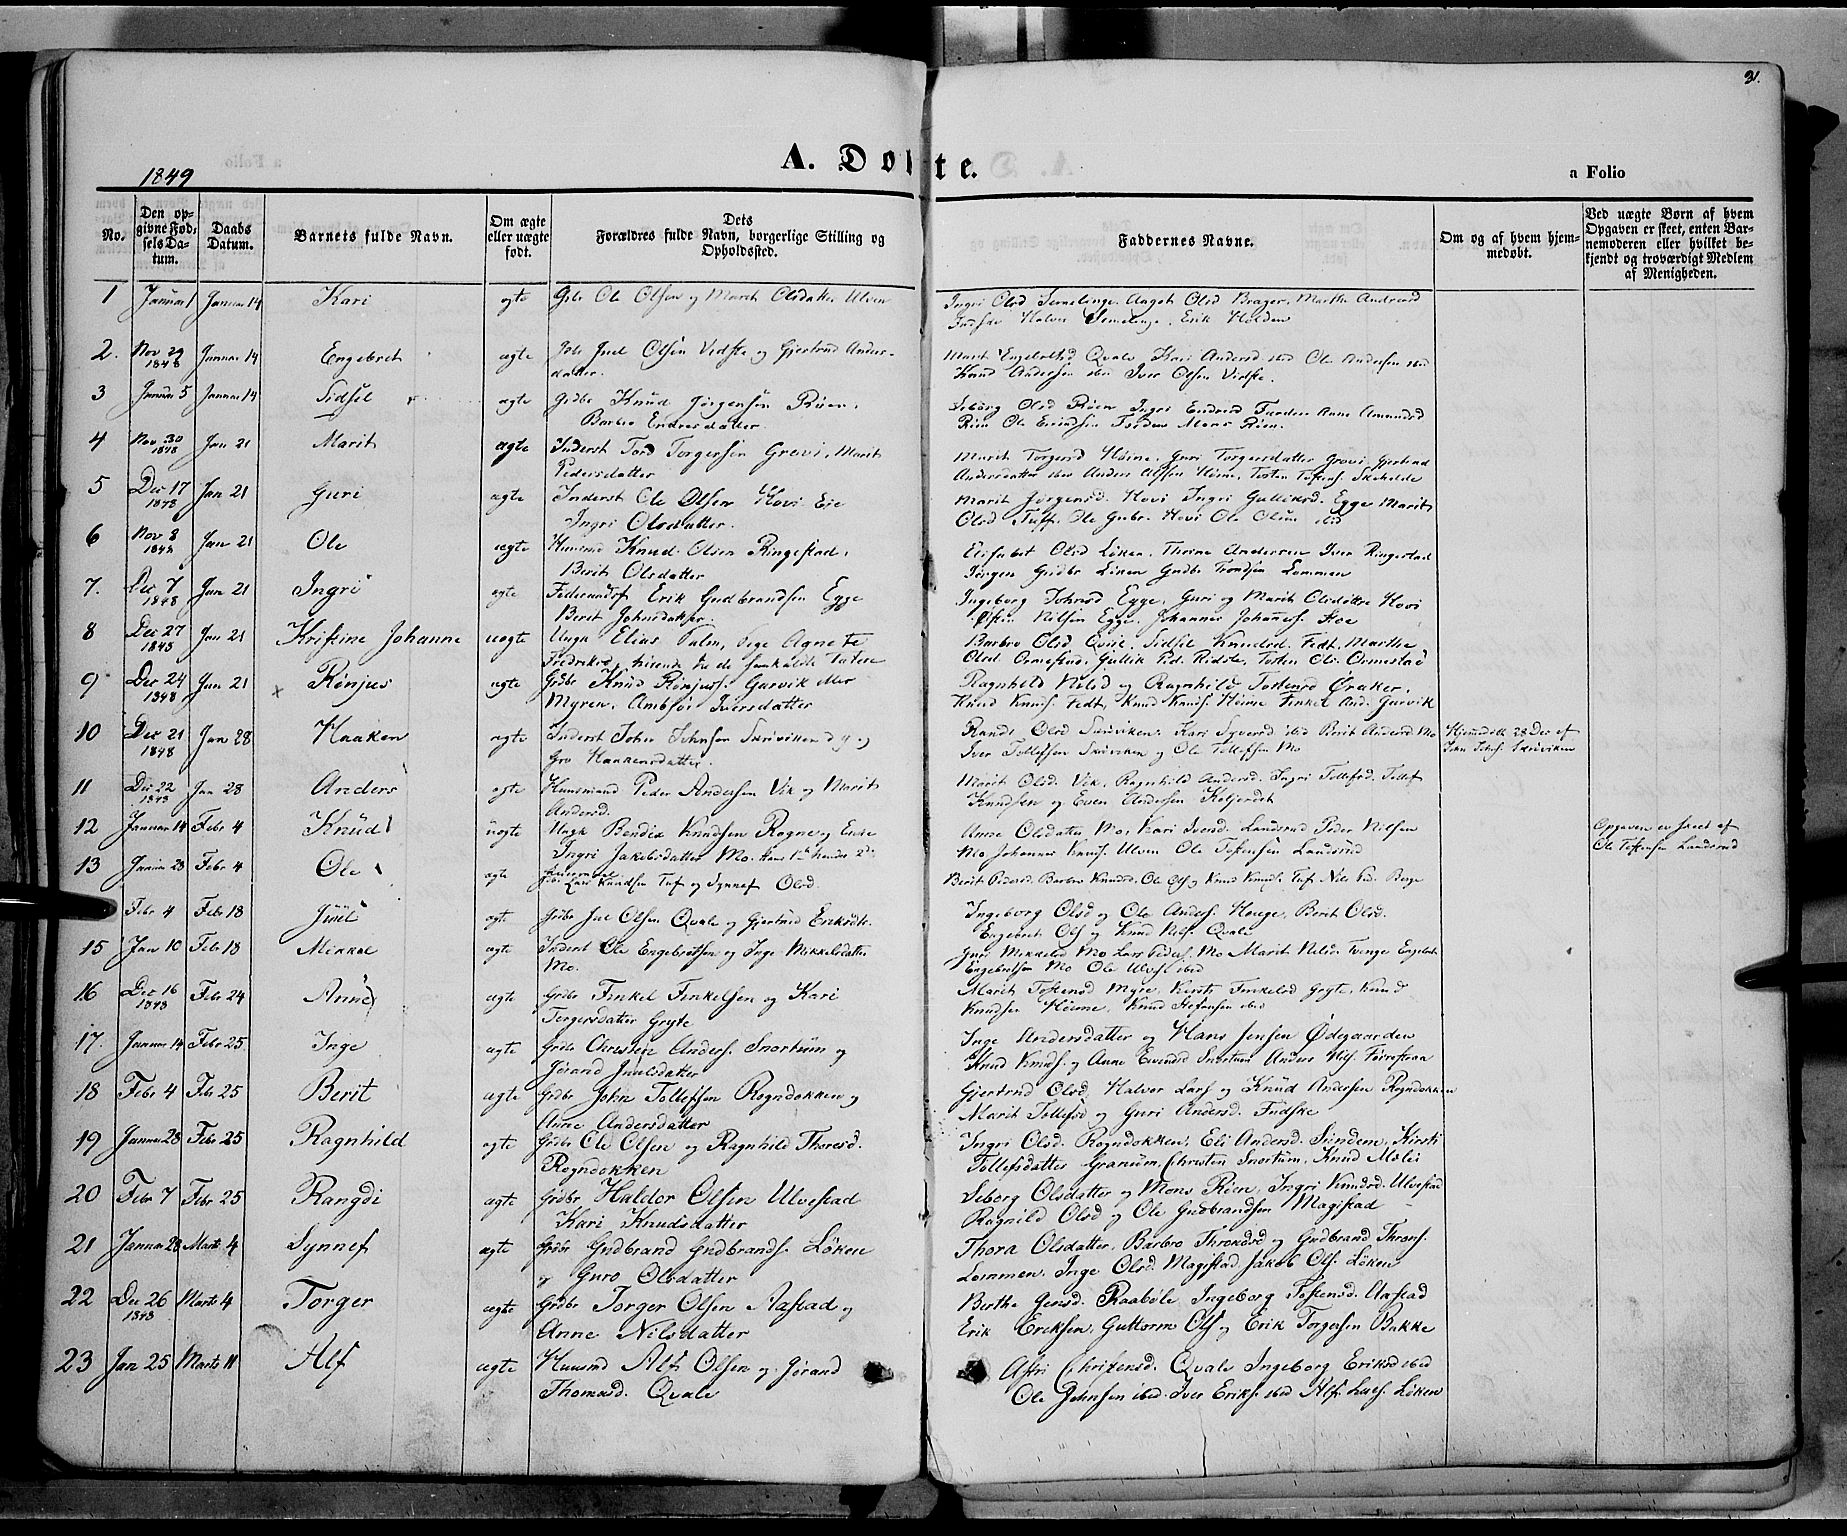 31.
A. Døbte.
1849
a Folio
No.
Den op-
givne Fød-
sels Da-
tum.
Daabs
Datum.
Barnets fulde Navn.
Om ægte
eller uægte
født.
Dets
Forældres fulde Navn, borgerlige Stilling og
Opholdssted.
Faddernes Navne.
Om og af hvem hjem-
medøbt.
Ved uægte Børn af hvem
Opgaven er skeet, enten Bar-
nemoderen eller hvilket be-
kjendt og troværdigt Medlem
af Menigheden.
1 Januar 1 Januar 14 Kari ægte Gdbr Ole Olsen og Marit Olsdatter Ulven
Ingri Olsd Semelenge, Olsd Brager, Marthe Andersd
Fudske Halvor Semelenge, Erik Holden
2. Nov 29 1848 Januar 14 Engebret ægte Juel Olsen Vidste og Gjertrud Anders-
datter.
Marit Engebretsd Qvale, Kari Andersd ibid Ole Andersen ibid
Knud Andersen ibid Iver Olsen Vidste.
3 Januar 5 Januar 14 Sidsel ægte Gdbr Knud Jørgensen Røen,
Barbro Endresdatter
Seborg Olsd Røen Ingri Endresd Anne Amundsd
Røen Ole Mons Røen.
4 Nov 30 1848 Jan 21 Marit ægte Inderst Tord Torgersen Grovi, Marit
Pedersdatter
Marit Torgersd Høine, Guri Torgersdatter Grovi, Gjertrud
Andersdatter ibid Anders Høine, Tosten Tostens.
5 Dec 17 1848 Jan 21 Guri ægte Inderst Ole Olsen Hovi Eie
Ingri Olsdatter.
Marit Jørgensd. Hovi Ingri Gulliksd. Egge Marit
Olsd Tuff. Ole Gubr. Hovi Ole Olsen ibid
6 Nov 8 1848 Jan 21 Ole ægte Huusmd Knud Olsen Ringestad,
Berit Olsdatter
Elisabet Olsd Løken, Thrine Andersen Iver Ringestad
Jørgen Gudbr Løken Gudbr Trondsen Lommen
7. Dec 7 1848 Jan 21 Ingri ægte Erik Gudbrandsen Egge
Berit Johnsdatter.
Ingeborg Johnsd Egge, Guri og Marit Olsdøttre Hovi
Østen Nilsen Egge, Johannes Johanness. Hoe
8 Dec 27 1848 Jan 21 Kristine Johanne uægte Ungk Elias Palm, Agnete
Fredriksd, hørende til de saakaldte Tatere
Barbro Olsd Qviit, Sidsel Knudsd. Fedt, Marthe
Olsd Ormestad, Gullik Ped. Ridste, Tosten Ols. Ormestad
9 Dec 24 1848 Jan 21 Rønjus ægte Gdbr Knud Rønjuss. Gurvik eller
Myren, Ambjør Iversdatter
Ragnhild Nilsd og Ragnhild Tostensd Øraker,
Knud Knuds. Fedt, Knud Knuds. Høine Finkel And. Gurvik
10 Dec 21 1848 Jan 28 Haaken ægte Inderst John Johnsen Skrøviken og
Gro Haakensdatter.
Randi Olsd Skrøviken, Kari Syversd ibid Berit Andersd Mo
Iver Tollefsen Skrøviken og Ole Tollefsen Mo
Hjemmedøbt 28 Dec af
John Johns. Skrøviken
11 Dec 22 1848 Jan 28 Anders ægte Huusmand Peder Andersen Vik og Marit
Andersd.
Marit Olsd. Vik, Ragnhild Andersd. Ingri Tollefsd. Tollef
Knudsen og Even Andersen
12 Januar 14 Febr 4 Knud uægte Ungk Bendix Knudsen Rogne og Enke
Ingri Jakobsdatter Mo. Hans 1ste hendes 2de
Anne Olsdatter Mo, Kari Iversd. Landsrud Peder Nilsen
Mo Johannes Knuds. Ulven Ole Tostensen Landsrud
Opgaven er skeet af
Ole Tostensen Landsrud
13 Januar 28 Febr 4 Ole ægte Lars Knudsen Tuf og Synnef Olsd.
Berit Pedersd. Barbro Knudsd. Ole Ols og Knud Knuds. Tuf Nils Ped. Berge
Febr 4 Febr 18 Juul ægte Gdbr Juel Olsen Qvale og Gjertrud Eriksdtr.
Ingeborg Olsd og Ole Anders. Hauge, Berit Olsd.
Engebret Ols og Knud Nils. Qvale
15 Jan 10 Febr 18 Mikkel ægte Inderst Ole Engebretsen og Inge Mikkelsdatter
Mo.
Guri Mikkelsd Mo Lars Peders. Mo Marit Nilsd. Tvenge Engebret
Engebretsen Mo Ole Ulvs. ibid
16 Dec 16 1848 Febr 24 Anne ægte Grdbr Finkel Finkelsen og Kari
Torgersdatter Gryte
Marit Tostensd Myre, Kirsti Finkelsd Gryte, Knud
Knudsen Høine, Knud ibid
17. Januar 14 Febr 25 Inge ægte Grdbr Christen Anders. Snortum og
Jørand Juulsdatter
Inge Andersdatter og Hans Jensen Ødegaarden
Knud Knuds. og Anne Evensd Snortum Anders Nils.
18 Febr 4 Febr 25 Berit ægte Grdbr John Tollefsen Rogndokken og
Anne Andersdatter
Gjertrud Olsd, Halvor Lars og Knud Andersen Rogndokken
Marit Tollefsd og Guri Andersd. Fudske
19 Januar 28 Febr 25 Ragnhild ægte Grdbr Ole Olsen og Ragnhild Thoresd.
Rogndokken
Ingri Olsd. Rogndokken, Eli Andersd. Sundem, Kirsti
Tollefsdatter Granum, Christen Snortum, Knud
20 Febr 7 Febr 25 Rangdi ægte Grdbr Haldor Olsen Ulvestad
Kari Knudsdatter
Seborg Olsdatter og Mons Røen, Ingri Knudsd. Ulvestad
Ragnild Olsd og Ole Gudbrandsen Magistad
21 Januar 28 Marts 4 Synnef ægte Grdbr Gudbrand Gudbrands. Løken
og Guro Olsdatter
Thora Olsdatter, Barbro Throndsd og Gudbrand Throns.
Lommen, Inge Olsd. Magistad Jakob Ols. Løken
22 Dec 26 1848 Marts 4 Torger ægte Grdbr Torger Olsen Aastad og
Anne Nilsdatter
Berthe Jensd. Raabøle Ingeborg Tostensd. Aastad
Erik Eriksen, Guttorm Ols og Erik Torgersen Bakke
23 Jan 25 Marts 11 Alf ægte Huusmd Alf Olsen og Jørand
Thomasd. Qvale
Astri Christensd. Qvale Ingeborg Eriksd ibid
Ole Johnsen ibid. Iver Eriks. ibid Alf Lars. Løken